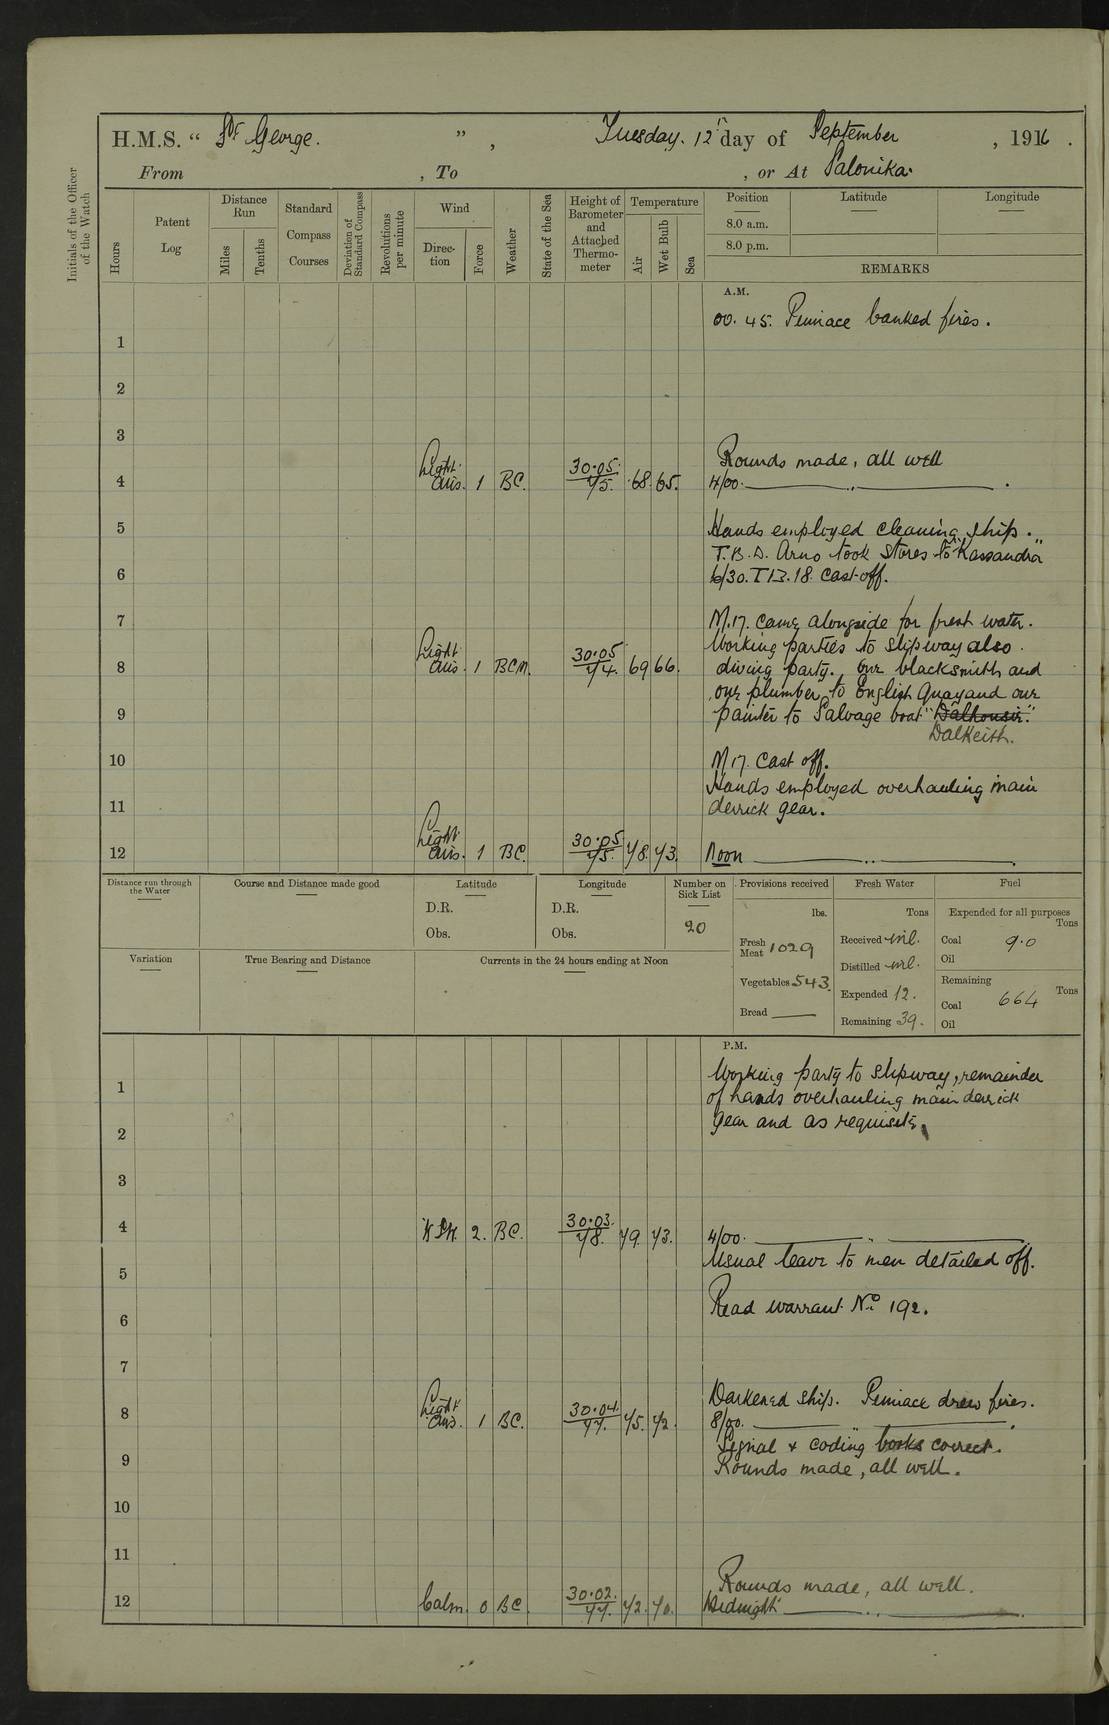 H.M.S. “ St George. ”, Tuesday. 12th day of September, 1916.
From , To , or At Salonika.
Initials of the Officer of the Watch
Hours
Patent Log
Distance Run
Miles
Tenths
Standard Compass Courses
Deviation of Standard Compass
Revolutions per minute
Wind
Direction
Force
Weather
State of the Sea
Height of Barometer and Attached Thermometer
Temperature
Air
Wet Bulb
Sea
Position
8.0 a.m.
8.0 p.m.
Latitude
Longitude
REMARKS
A.M.
00.45. Pinnace banked fires.
1
2
3
Rounds made, all well
4 Light airs. 1 BC. 30.05./75. 68. 65. 4/00. ———— „ ————.
5 Hands employed cleaning ship.
T.B.D. Arno took stores to "Kassandra"
6 6/30. T.B.18. cast off.
7 M.17. came alongside for fresh water.
Working parties to slipway also
8 Light airs. 1 BCM. 30.05/74. 69 66. diving party. Our blacksmith and
our plumber to English Quay and our
9 painter to Salvage boat "Dalhousie."
Dalkeith.
10 M17. Cast off.
Hands employed overhauling main
11 derrick gear.
12 Light airs. 1 BC. 30.05/75. 78. 73. Noon
Distance run through the Water
Course and Distance made good
Latitude
D.R.
Obs.
Longitude
D.R.
Obs.
Number on Sick List
20
Provisions received
lbs.
Fresh Meat 1029
Vegetables 543.
Bread ——
Fresh Water
Tons
Received nil.
Distilled nil.
Expended 12.
Remaining 39.
Fuel
Expended for all purposes
Tons
Coal 9.0
Oil
Remaining
Tons
Coal 664
Oil
Variation
True Bearing and Distance
Currents in the 24 hours ending at Noon
P.M.
1 Working party to slipway, remainder
of hands overhauling main derrick
2 gear and as requisite.
3
4 2. BC. 30.03./78. 79. 73. 4/00. ———— „ ————
5 Usual leave to men detailed off.
6 Read warrant No 192.
7
Darkened ship. Pinnace drew fires.
8 Light airs. 1 BC. 30.04./77. 75. 72. 8/00. ———— „ ————.
Signal & coding books correct.
9 Rounds made, all well.
10
11
Rounds made, all well.
12 Calm. 0 BC. 30.02./77. 72. 70. Midnight ———— „ ————.